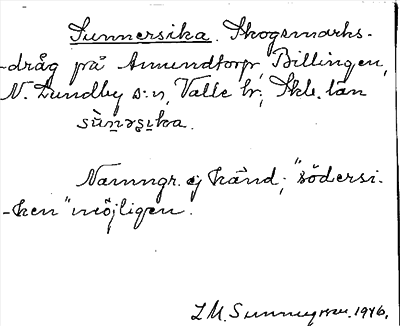 Sunnersika. Skogsmarks-
-dråg på Amundtorp, Billingen,
N. Lundby s:n, Valle hr; Skb. län
sùnərsika.
Namngr. ej känd; "södersi-
-ken" möjligen.
1946.